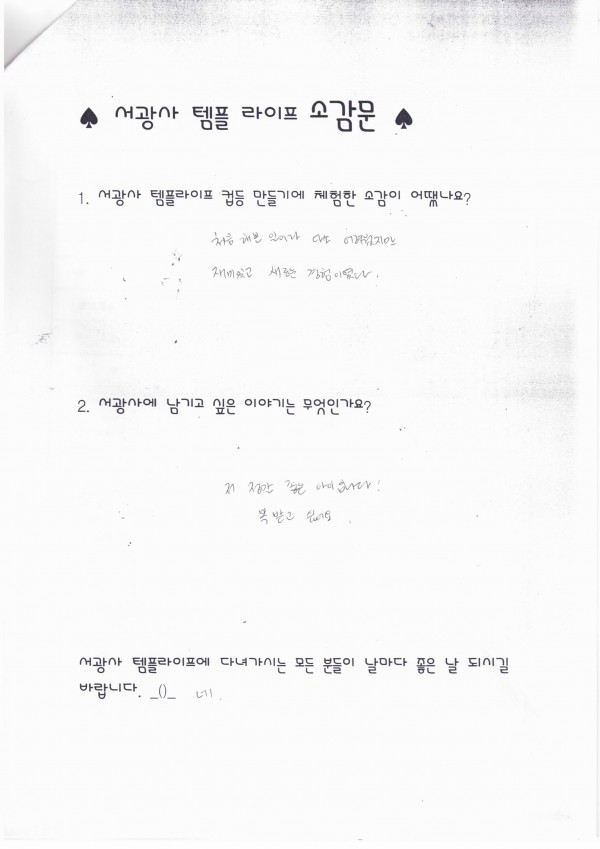 ♠ 서광사 템플 라이프 소감문 ♠
1. 서광사 템플라이프 컵등 만들기에 체험한 소감이 어땠나요?
처음 해본 일이라 어려웠지만
재미있고 새로운 경험이었다.
2. 서광사에 남기고 싶은 이야기는 무엇인가요?
저 정말 좋은 아이입니다!
복 받고 싶어요.
서광사 템플라이프에 다녀가시는 모든 분들이 날마다 좋은 날 되시길
바랍니다. _()_ 네.